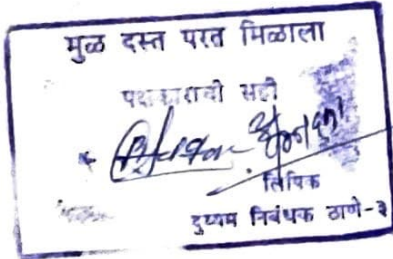 मुळ दस्त परत मिळाला
पक्षकाराची सही
लिपिक
दुय्यम निबंधक ठाणे-३